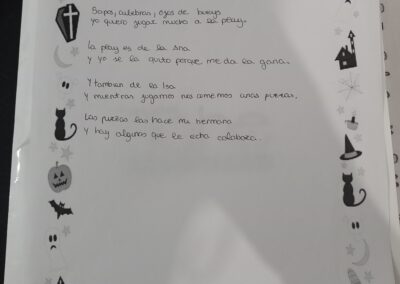 Sapos, culebras, ojos de bueys
yo quiero jugar mucho a la play.
La play es de la Ana
y yo se la quito porque me da la gana.
Y tambien de la Isa
y mientras jugamos nos comemos unas puezas.
Las puezas las hace mi hermana
y hay algunas que le echa calabaza.